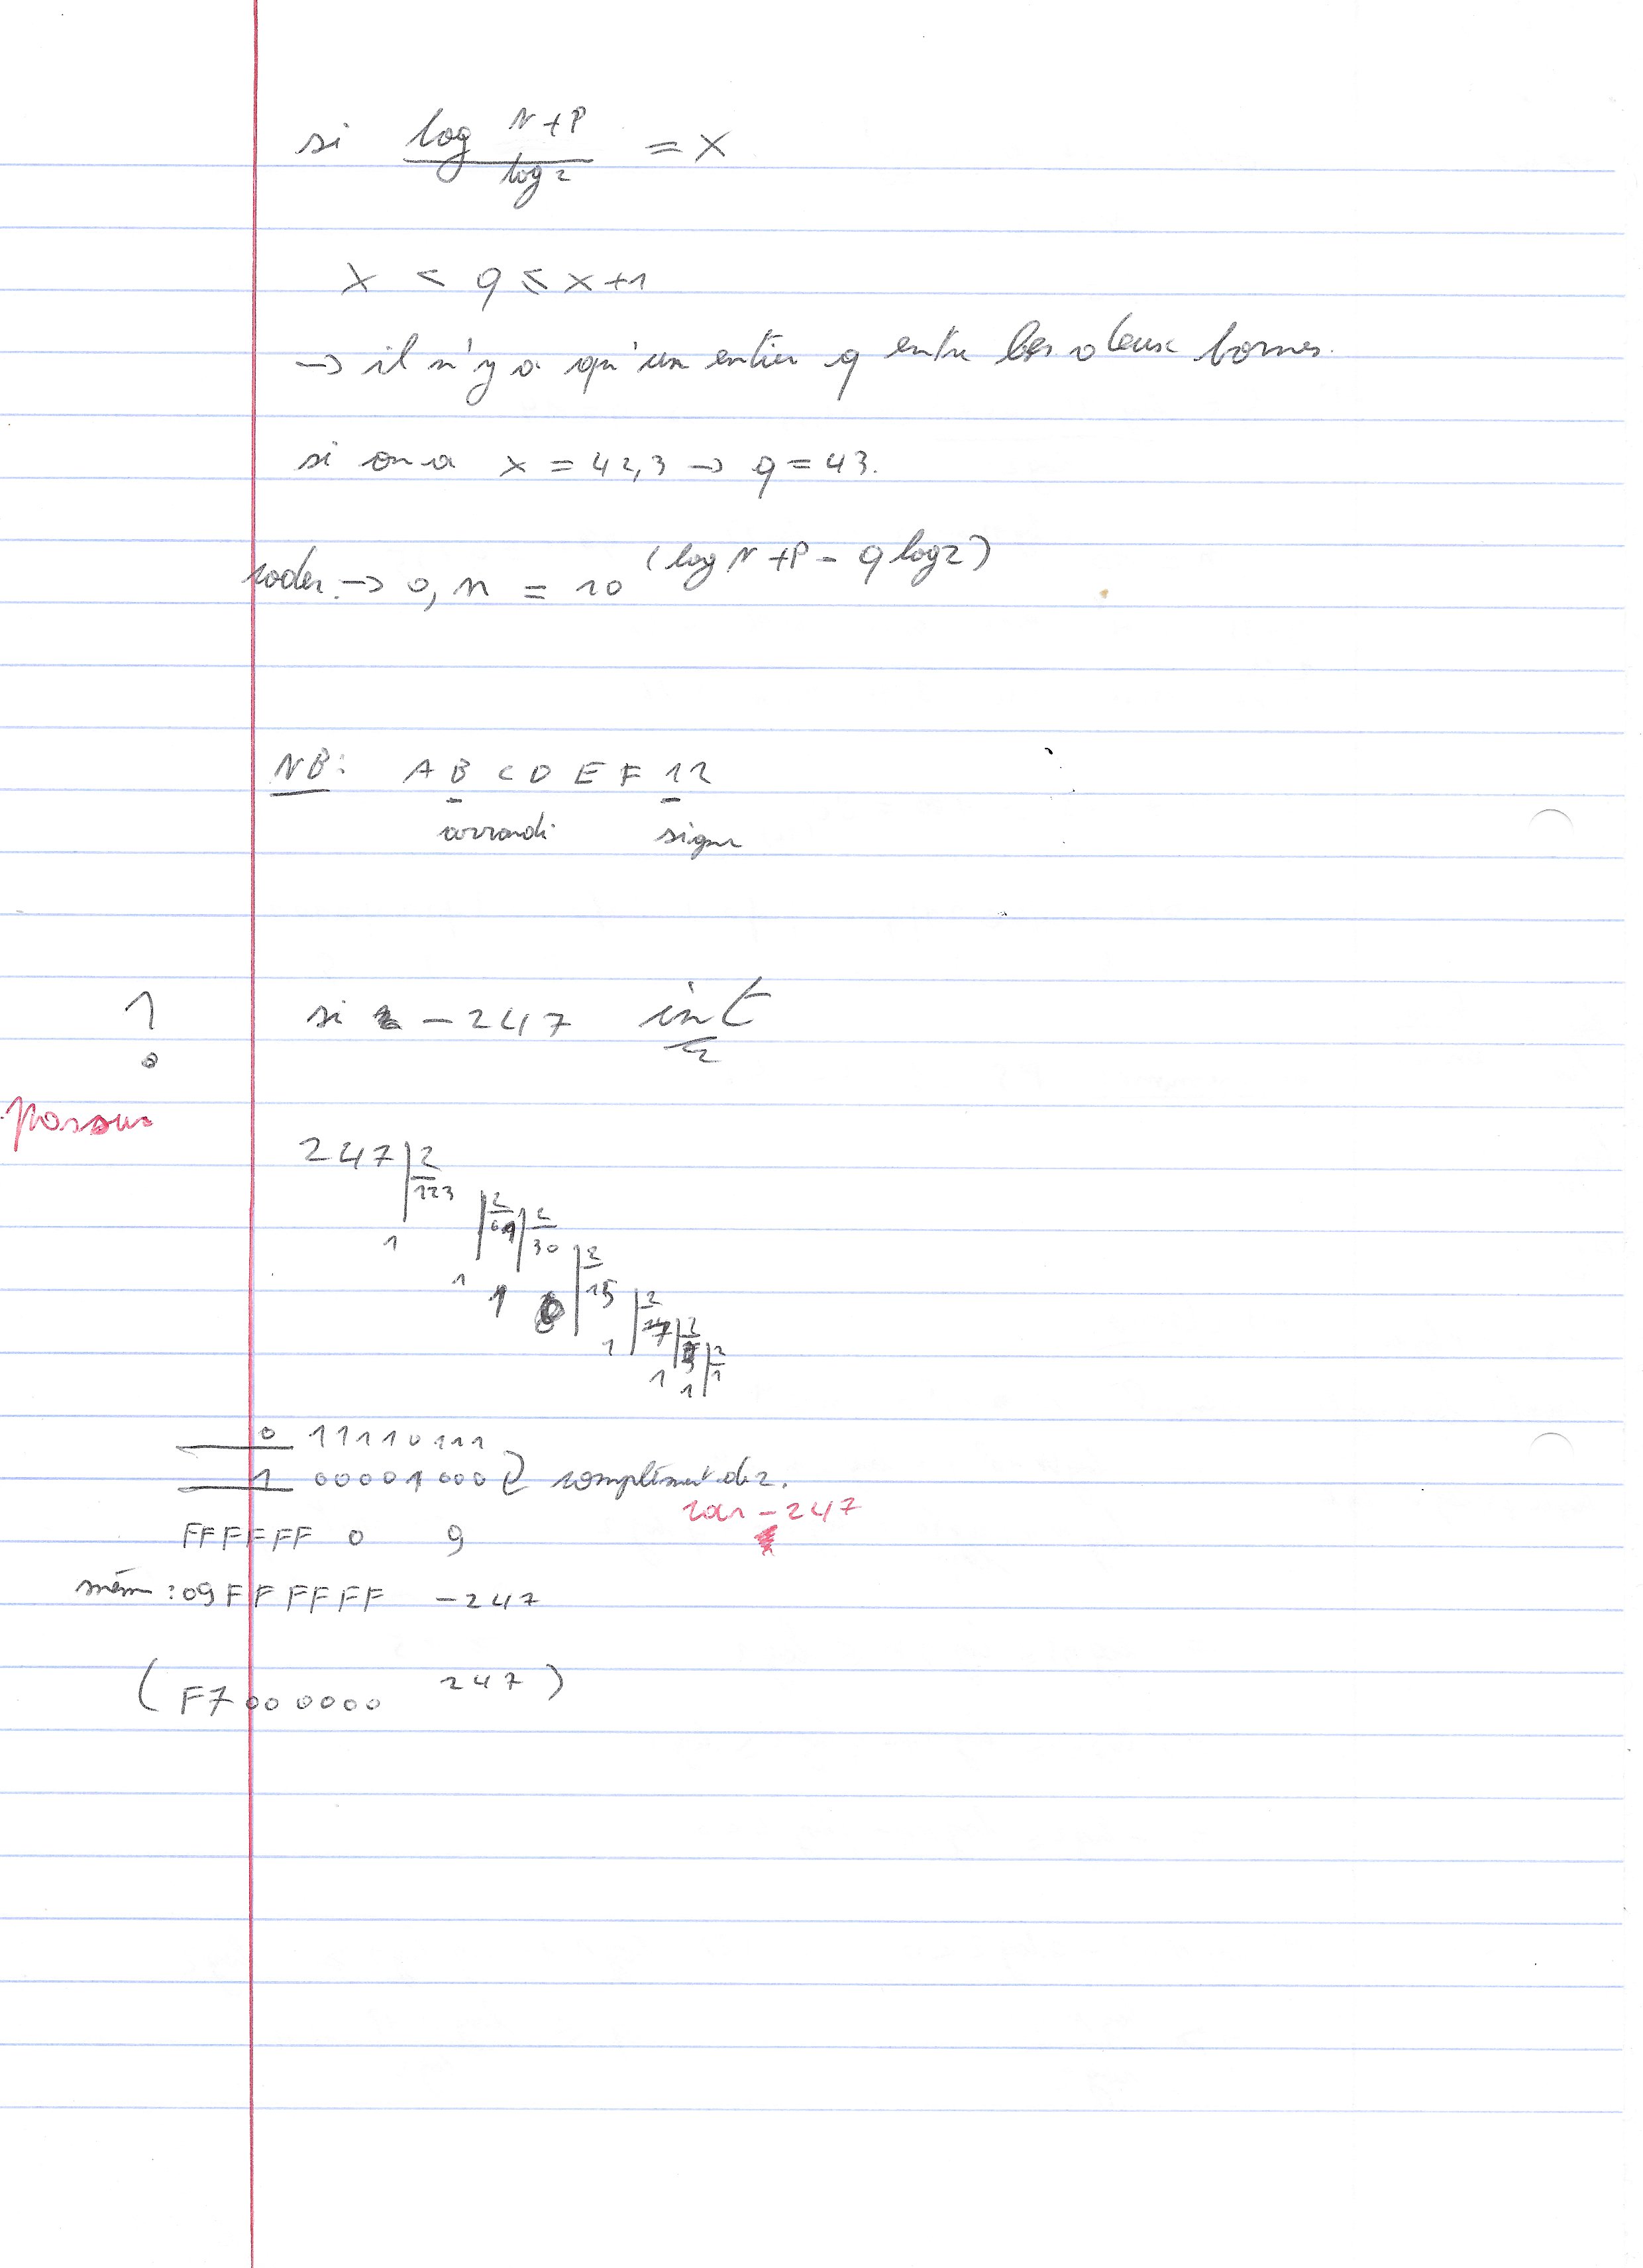 si log N+P / log 2 = X
X < q ≤ X+1
→ il n'y a qu'un entier q entre les deux bornes.
si on a x = 42,3 → q = 43.
coder → 0, n = 10 (log N + P - q log 2)
NB: A B C D E F 12
arrondi signe
! si - 247 int
247 2
123 2
1 61 2
30 2
1 1 0 15 2
1 7 2
1 3 2
1 1
0 11110111
1 00001000 complément de 2.
car - 247
FFFFFF 0 9
mém : 09FFFFFF - 247
(F7000000 247)